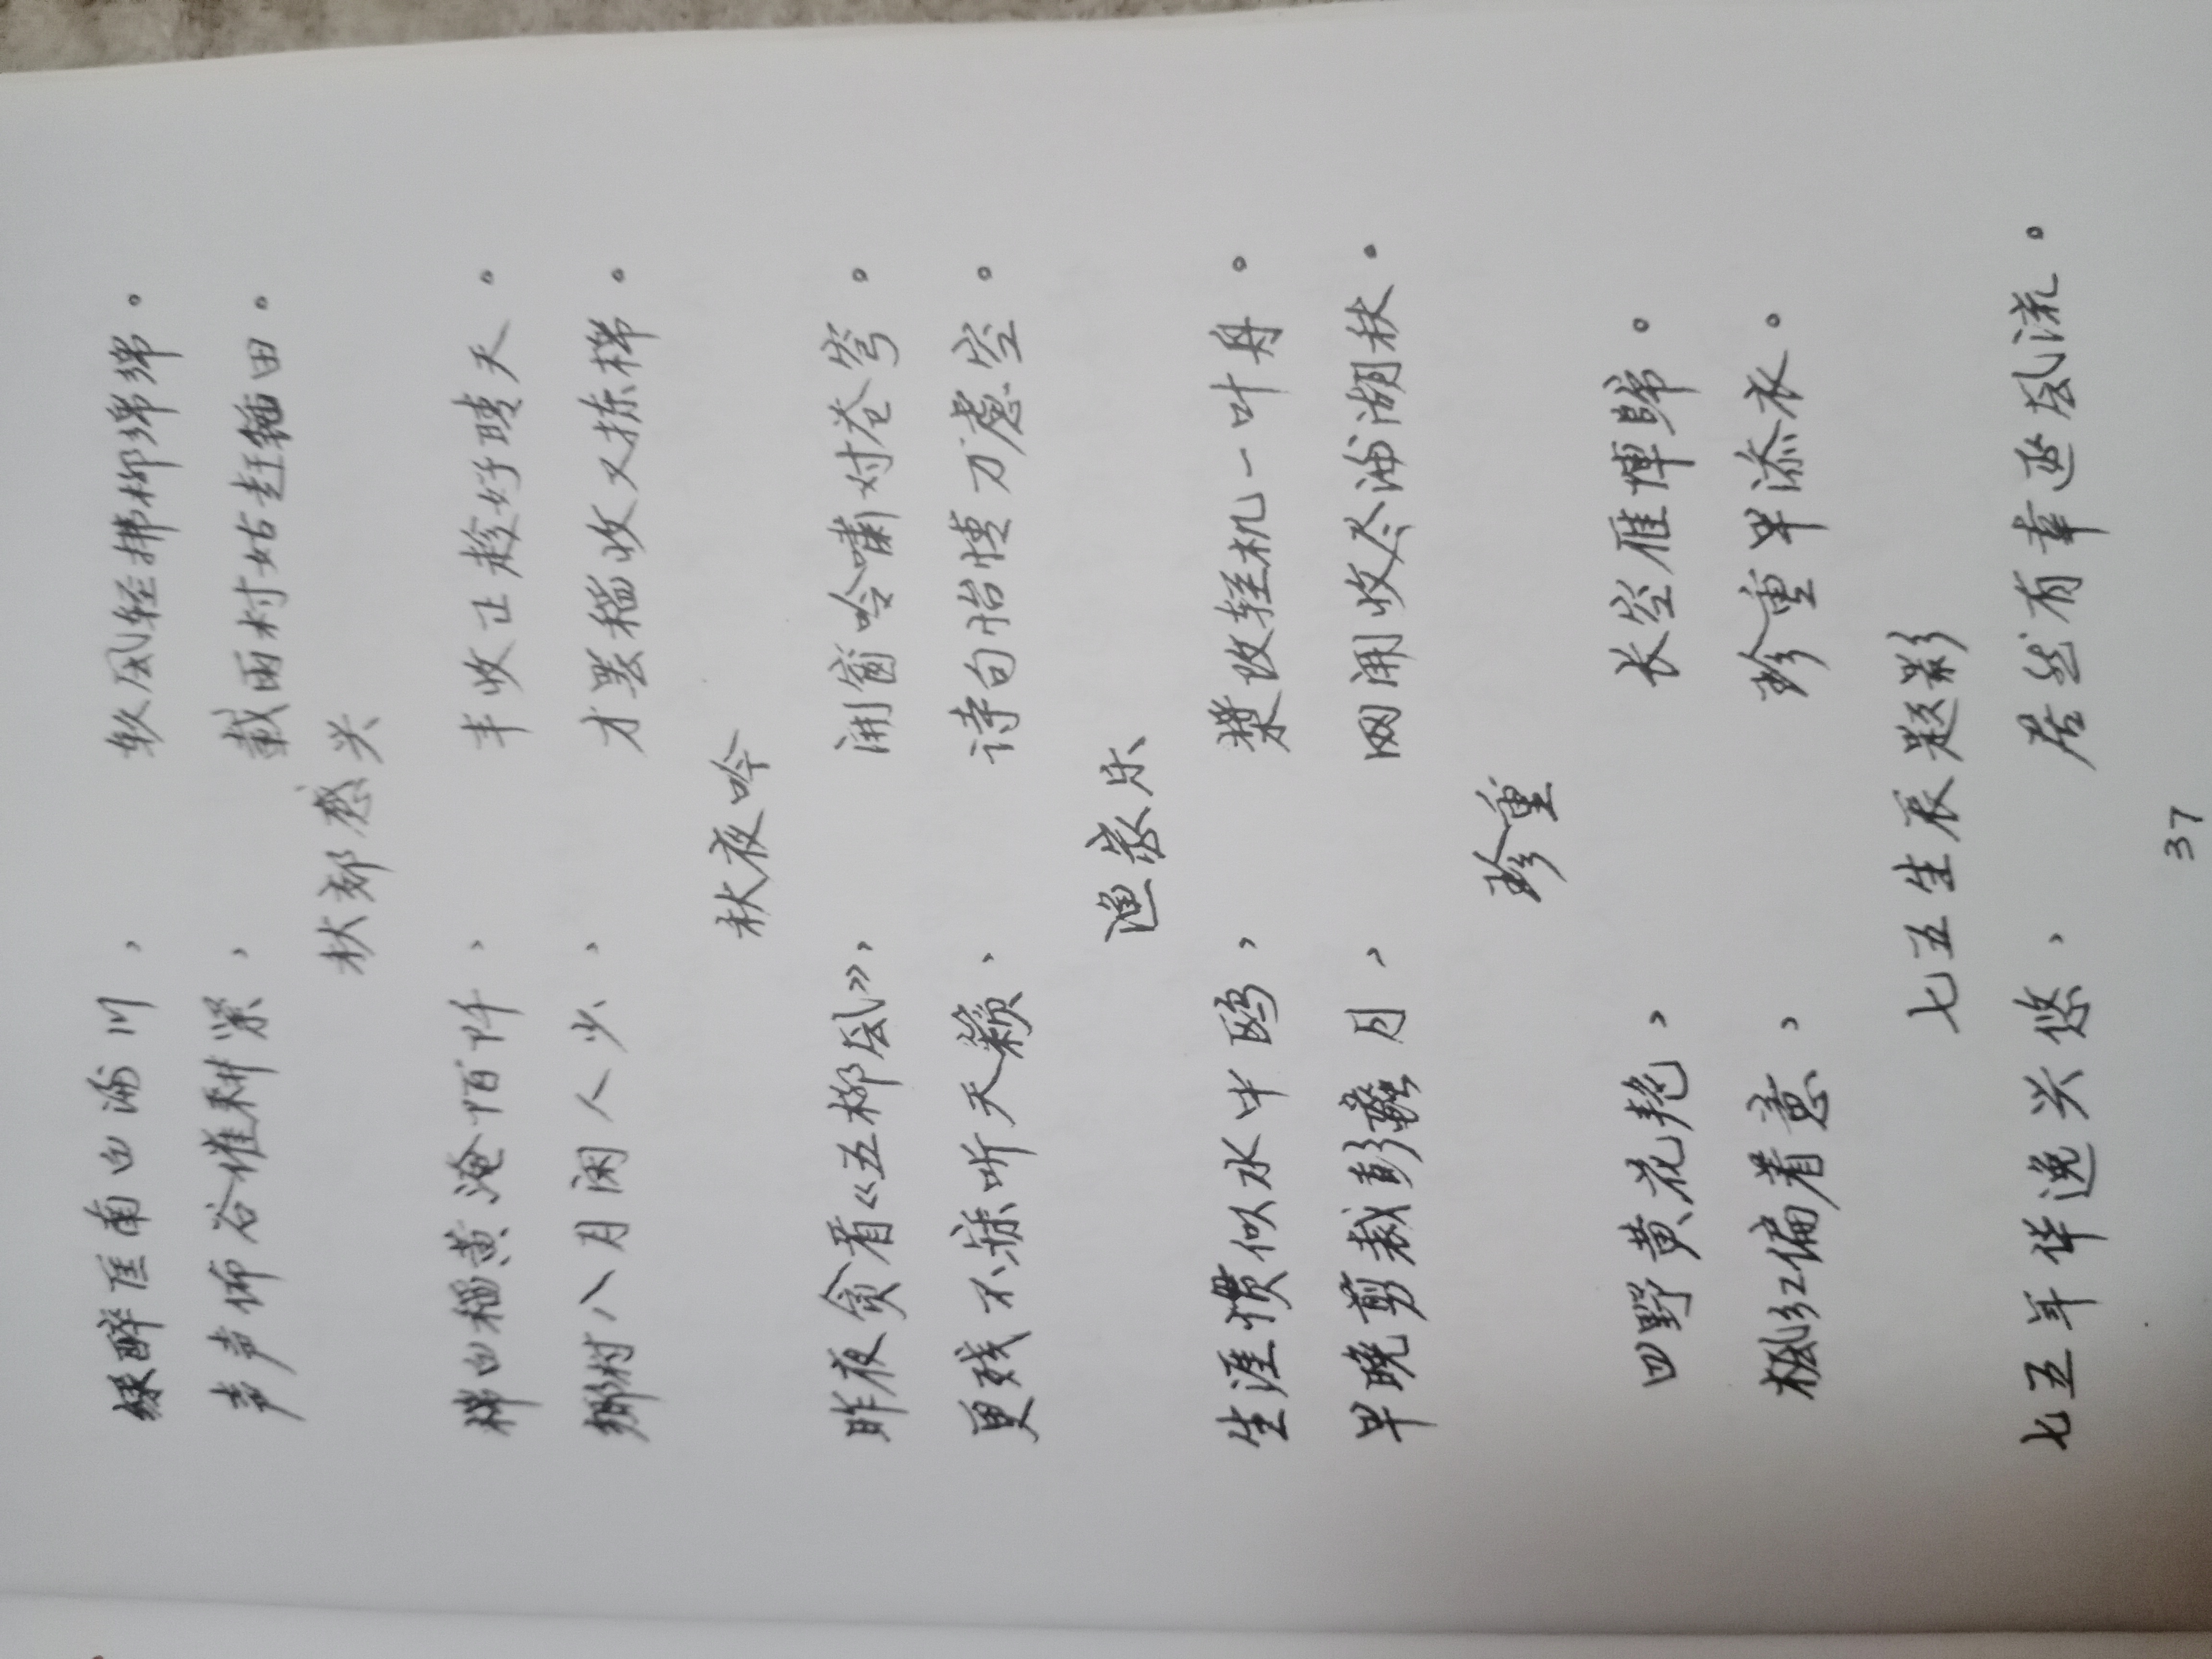 绿醉匡南白浦川， 软风轻拂柳绵绵。
声声布谷催耕紧， 戴雨村姑赶锸田。
秋郊感兴
棉白稻黄淹陌阡， 丰收正趁好晴天。
乡村八月闲人少， 才罢稻收又拣棉。
秋夜吟
昨夜贪看《五柳风》， 开窗吟啸对苍穹。
更残不寐听天籁， 诗句怡情万虑空。
渔家乐
生涯惯似水中鸥， 桨改轻机一叶舟。
早晚剪裁彭蠡月， 网开收尽浦湖秋。
珍重
四野黄花艳， 长空雁阵归。
枫红偏着意， 珍重早添衣。
七五生辰题影
七五年华逸兴悠， 居然有幸逛风流。
37